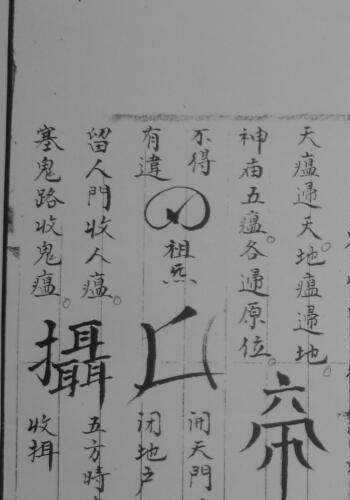 天瘟歸天。地瘟歸地。
神庙五瘟。各歸原位。
不得
有違
祖炁
開天門
闭地户
留人門收人瘟。
塞鬼路收鬼瘟。
攝
五方時
收